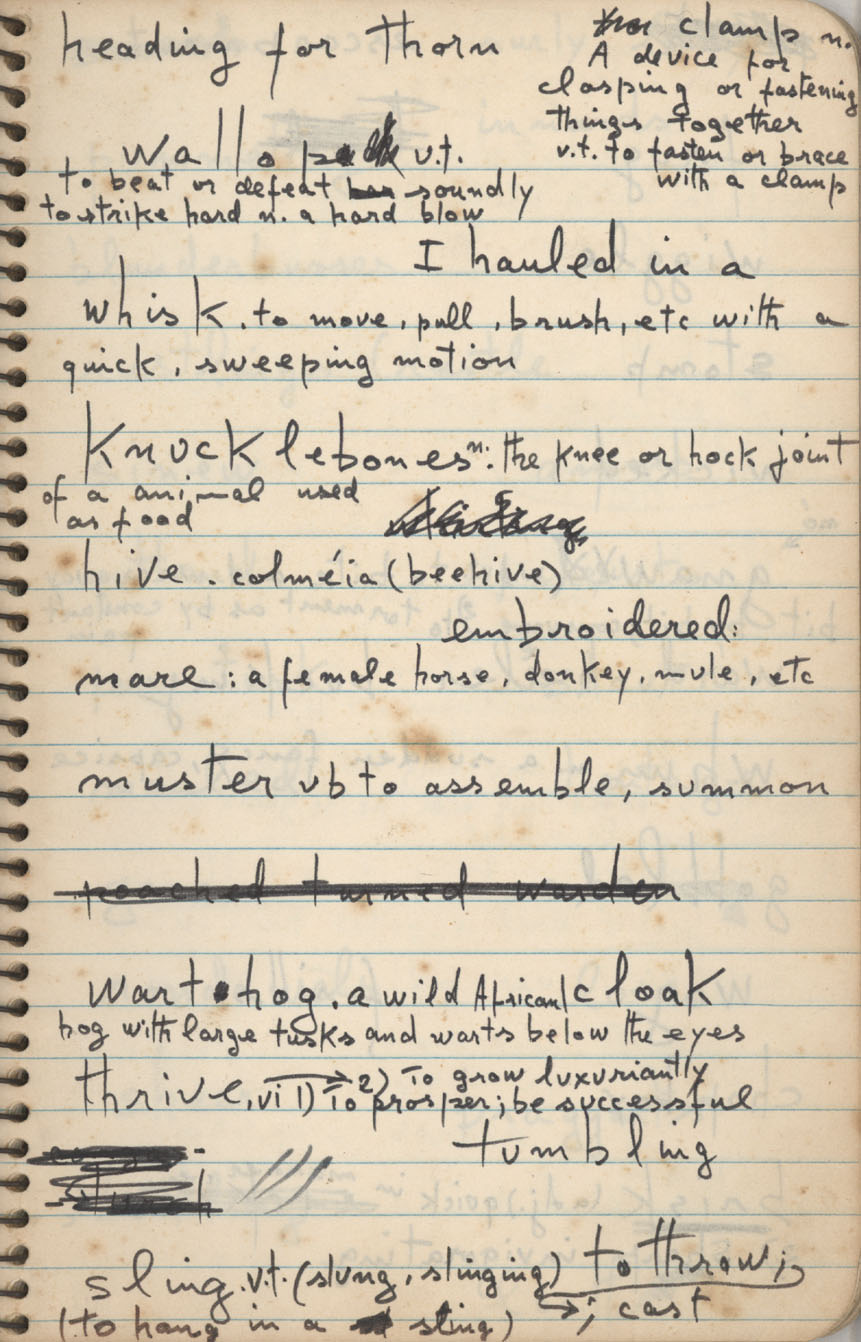 heading for Thorn
clamp n.
A device for
clasping or fastening
things together
v.t. to fasten or brace
with a clamp
wallop v.t.
to beat or defeat soundly
to strike hard n. a hard blow
I hauled in a
whisk. to move, pull, brush, etc with a
quick, sweeping motion
Knucklebones n: the knee or hock joint
of a animal used
as food
hive. colméia (beehive)
embroidered:
mare: a female horse, donkey, mule, etc
muster vb to assemble, summon
poached turned warden
wart hog. a wild African/cloak
hog with large tusks and warts below the eyes
thrive, vi 1) To prosper; be successful
→ 2) To grow luxuriantly
tumbling
sling. v.t. (slung, slinging) to throw;
→; cast
(to hang in a sling)